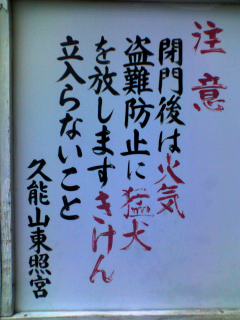 注意
閉門後は火気
盗難防止に猛犬
を放しますきけん
立入らないこと
久能山東照宮